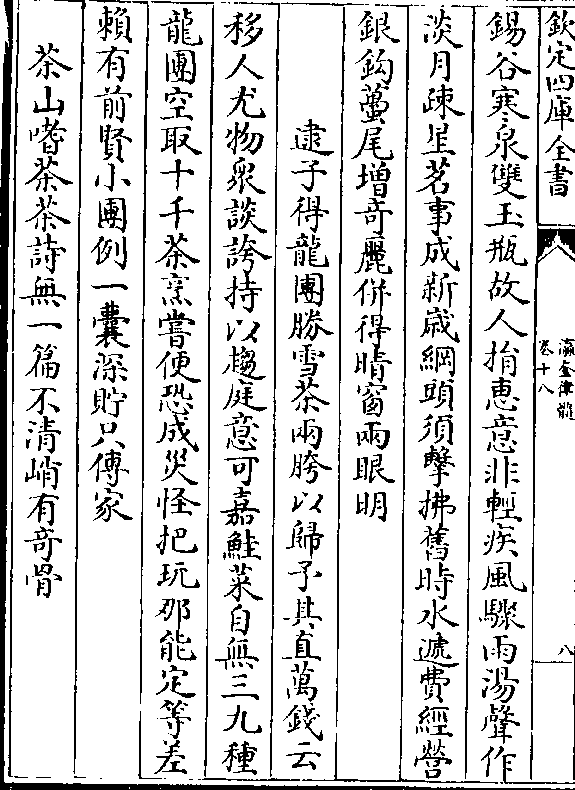 欽定四庫全書
瀛奎律髓
卷十八
八
錫谷寒泉雙玉瓶故人捐惠意非輕疾風驟雨湯聲作
淡月疎星茗事成新歲綱頭須擊拂舊時水遞費經營
銀鈎蠆尾增竒麗併得晴窗兩眼明
逮子得龍團勝雪茶兩胯以歸予其直萬錢云
移人尤物衆談誇持以趨庭意可嘉鮭菜自無三九種
龍團空取十千茶烹嘗便恐成災怪把玩那能定等差
賴有前賢小團例一囊深貯只傳家
茶山嗜茶茶詩無一篇不清峭有竒骨